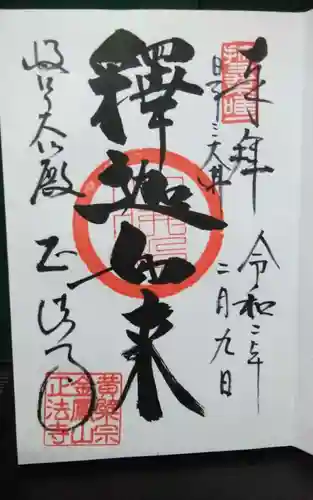 奉拝
日本三大佛
令和二年
二月九日
釋迦如来
岐阜大仏殿
正法寺
黄檗宗
金鳳山
正法寺